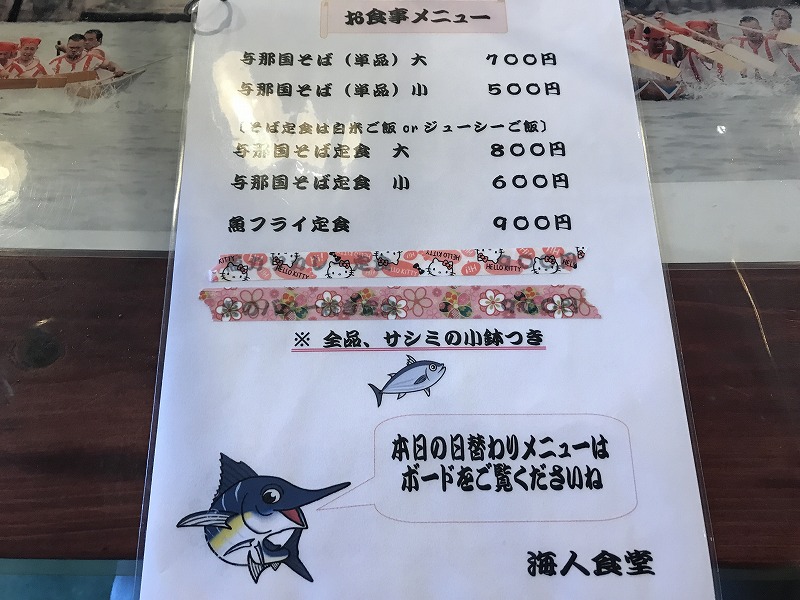 お食事メニュー
与那国そば（単品）大 700円
与那国そば（単品）小 500円
（そば定食は白米ご飯 or ジューシーご飯）
与那国そば定食 大 800円
与那国そば定食 小 600円
魚フライ定食 900円
HELLO KITTY HELLO KITTY HELLO KITTY
※ 全品、サシミの小鉢つき
本日の日替わりメニューは
ボードをご覧くださいね
海人食堂